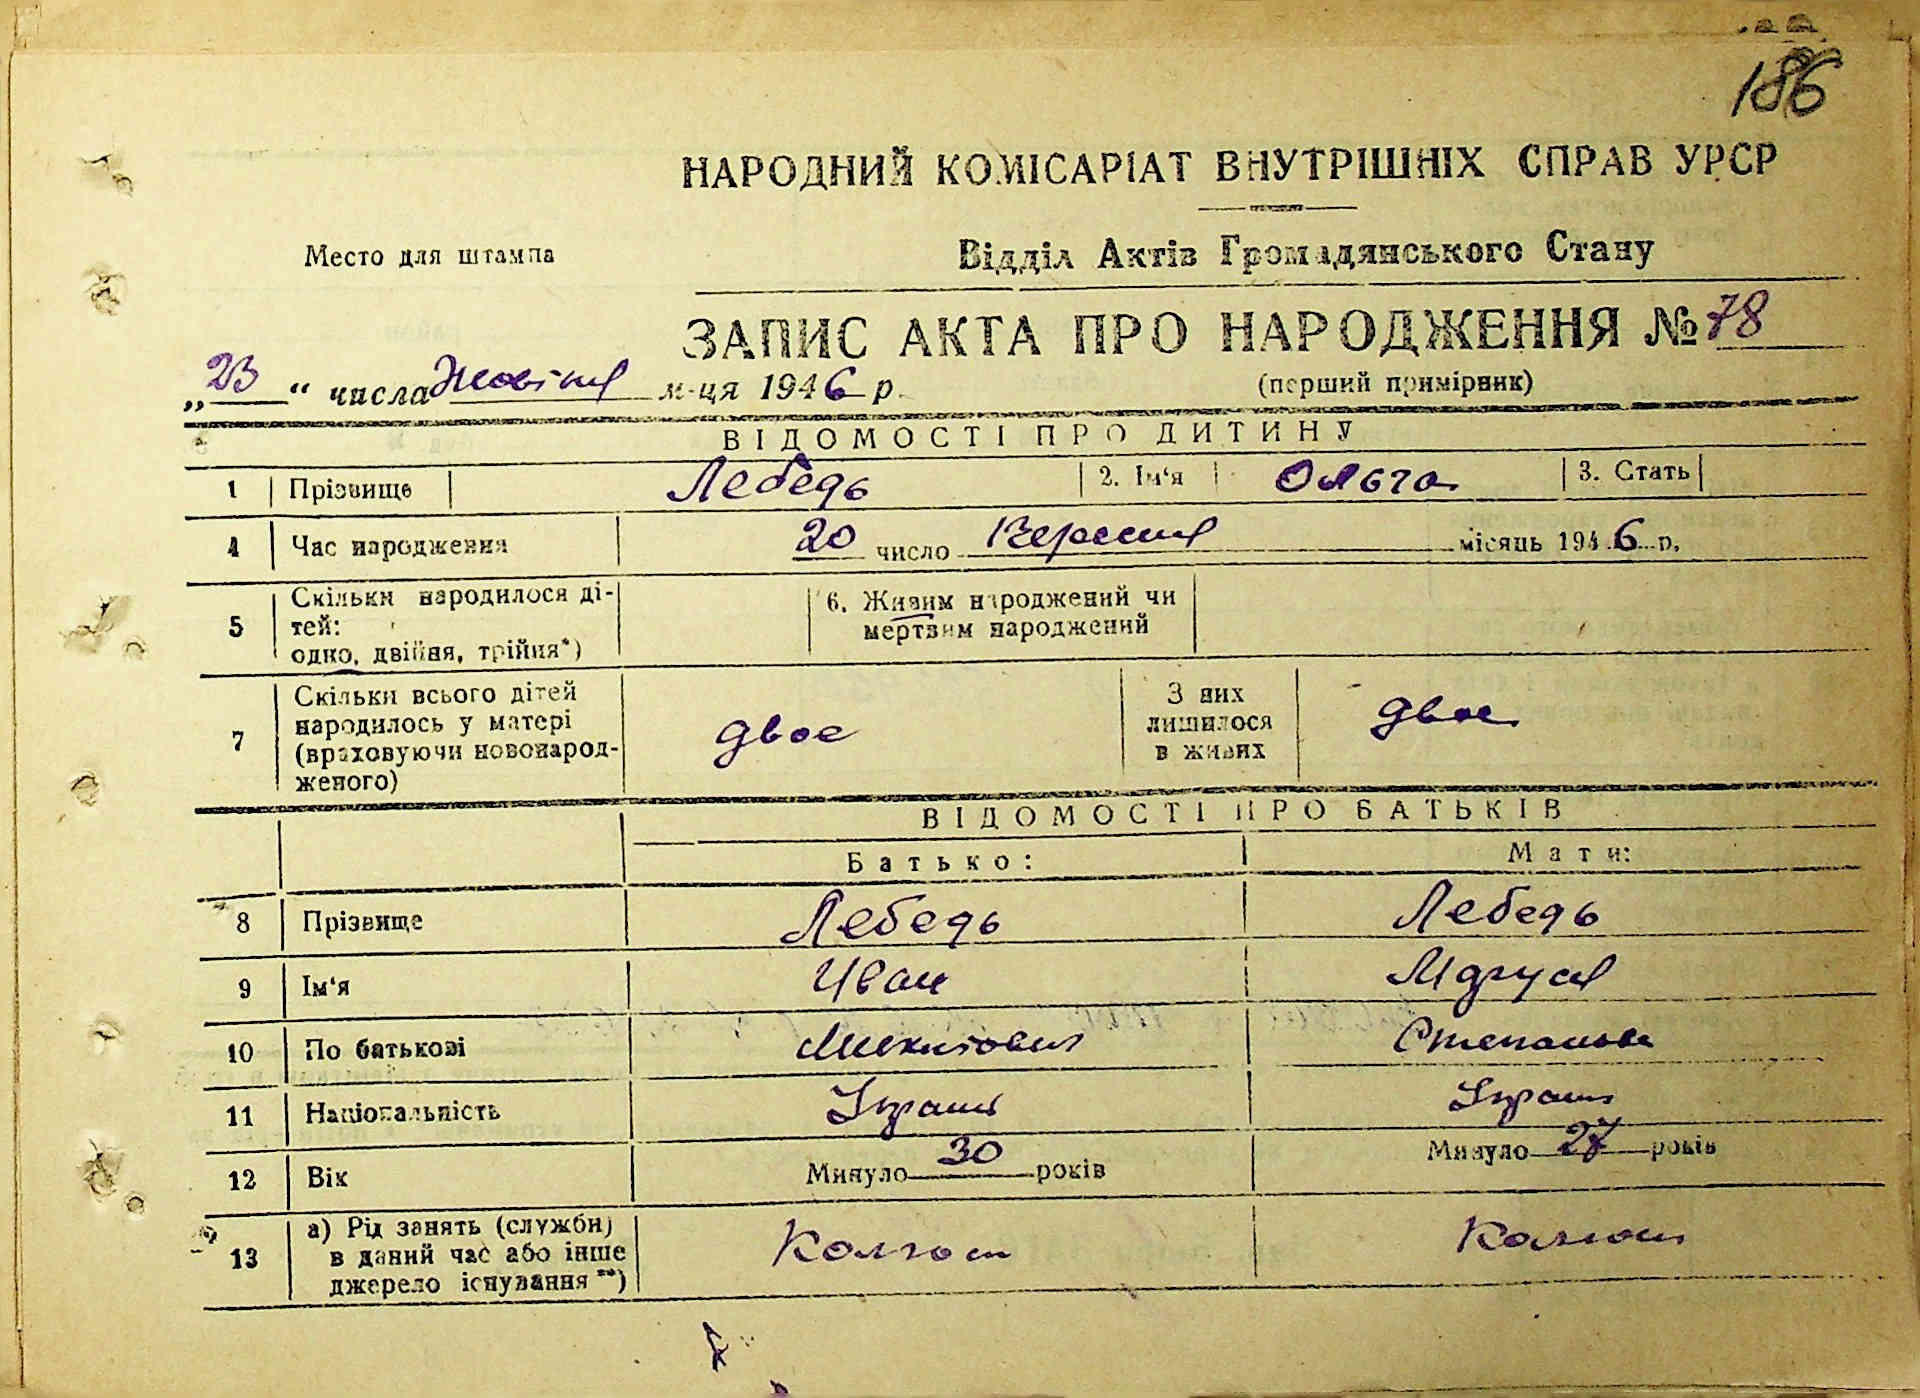 186
НАРОДНИЙ КОМІСАРІАТ ВНУТРІШНІХ СПРАВ УРСР
Место для штампа
Відділ Актів Громадянського Стану
ЗАПИС АКТА ПРО НАРОДЖЕННЯ № 78
„ 23 “ числа Жовтня м-ця 1946 р.
(перший примірник)
ВІДОМОСТІ ПРО ДИТИНУ
1 Прізвище Лебедь 2. Ім‘я Ольга 3. Стать
4 Час народження 20 число Вересня місяць 1946 р.
5 Скільки народилося ді-
тей:
одно, двійня, трійня*)
6. Живим народжений чи
мертвим народжений
7 Скільки всього дітей
народилось у матері
(враховуючи новонарод-
женого)
двое
З них
лишилося
в живих
двое
ВІДОМОСТІ ПРО БАТЬКІВ
Батько: Мати:
8 Прізвище Лебедь Лебедь
9 Ім‘я Иван
10 По батькові Микитович Степановна
11 Національність Украин Украин
12 Вік Минуло 30 років Минуло 27 років
13 а) Рід занять (служби)
в даний час або інше
джерело існування **)
Колгосп Колгосп